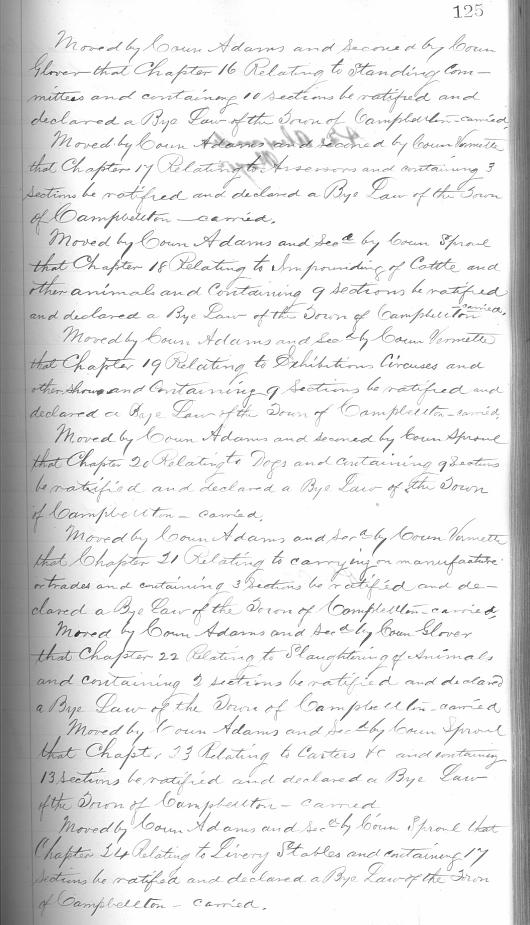 125
Moved by Coun Adams and seconed by Coun
Glover that Chapter 16 Relating to Standing Com-
mittees and containing 10 sections be ratified and
declared a Bye Law of the Town of Campbellton - carried
Moved by Coun Adams and seconed by Coun Vermette
that Chapter 17 Relating to Assessors and containing 3
sections be ratified and declared a Bye Law of the Town
of Campbellton - carried.
Moved by Coun Adams and Secd by Coun Sproul
that Chapter 18 Relating to Impounding of Cattle and
other animals and Containing 9 sections be ratified
and declared a Bye Law of the Town of Campbellton carried.
Moved by Coun Adams and Secd by Coun Vermette
that Chapter 19 Relating to Exhibitions Circuses and
other shows and Containing 9 Sections be ratified and
declared a Bye Law of the Town of Campbellton - carried,
Moved by Coun Adams and seconed by Coun Sproul
that Chapter 20 Relating to Dogs and containing 9 Sections
be ratified and declared a Bye Law of the Town
of Campbellton - carried,
Moved by Coun Adams and Secd by Coun Vermette
that Chapter 21 Relating to carrying on manufacture
or trades and containing 3 Sections be ratified and de-
clared a Bye Law of the Town of Campbellton - carried,
Moved by Coun Adams and Secd by Coun Glover
that Chapter 22 Relating to Slaughtering of Animals
and containing 2 sections be ratified and declared
a Bye Law of the Town of Campbellton - carried
Moved by Coun Adams and Secd by Coun Sproul
that Chapter 23 Relating to Carters &c and containing
13 Sections be ratified and declared a Bye Law
of the Town of Campbellton - carried
Moved by Coun Adams and Secd by Coun Sproul that
Chapter 24 Relating to Livery Stables and containing 17
Sections be ratified and declared a Bye Law of the Town
of Campbellton - carried.